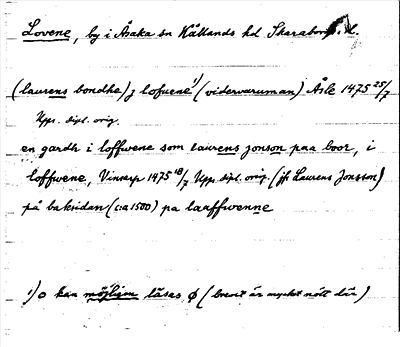 Lovene, by i Åsaka sn Kållands hd Skarabors l.
(laurens bondhe) j lofuene¹⁾ (vidervaruman) Åsle 1475 25/7
Upps. dipl. orig.
en gardh i loffwene som laurens jonson paa boor, i
loffwene, Vinarp 1475 18/7 Upps. dipl. orig. (jfr Laurens Jonsson)
på baksidan (c:a 1500) pa laaffwenne
¹⁾ o kan möjligen läsas ø (brevet är mycket nött där)